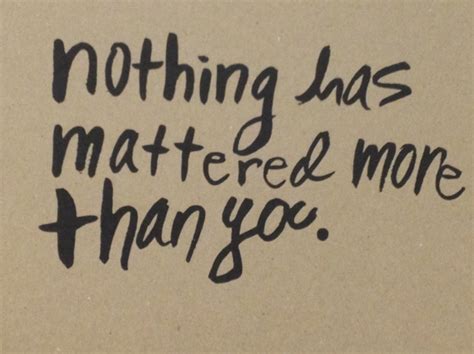 nothing has
mattered more
than you.